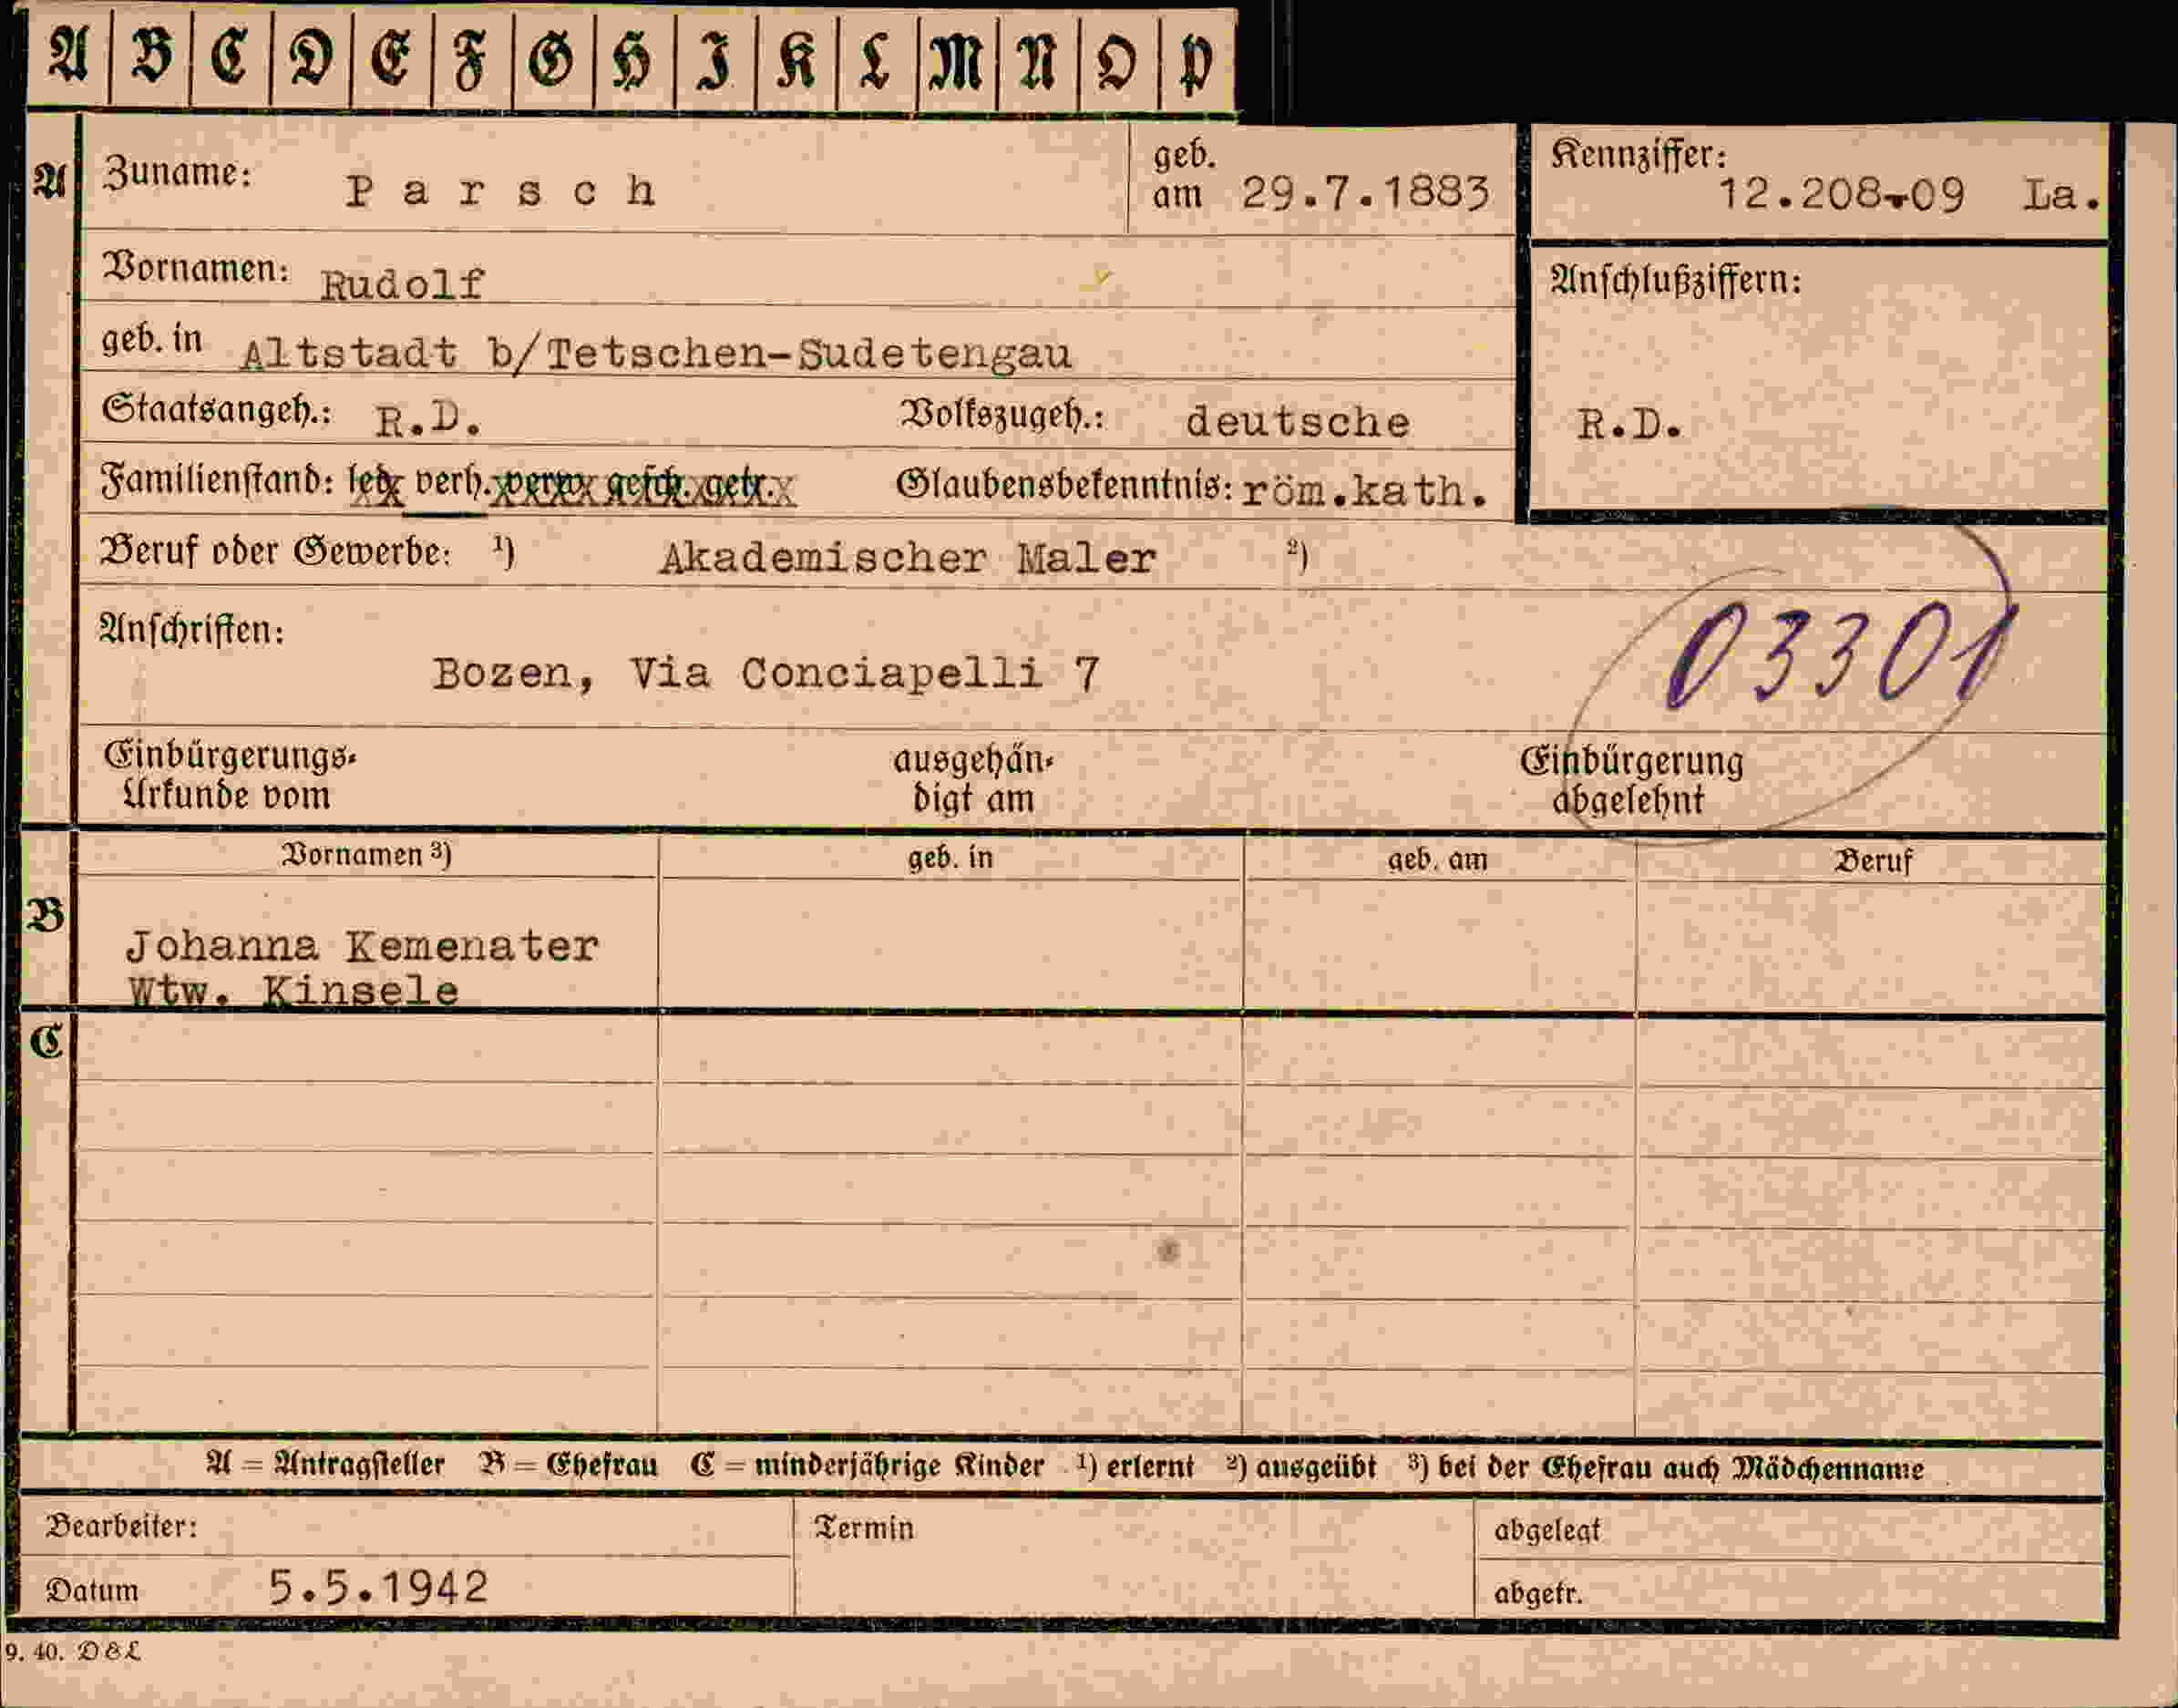 A B C D E F G H I K L M N O P
A Zuname: Parsch geb. am 29.7.1883 Kennziffer: 12.208-09 La.
Vornamen: Rudolf
Anschlußziffern:
geb. in Altstadt b/Tetschen-Sudetengau
Staatsangeh.: R.D. Volkszugeh.: deutsche R.D.
Familienstand: led. verh. verw. gesch. getr. Glaubensbekenntnis: röm.kath.
Beruf oder Gewerbe: 1) Akademischer Maler 2)
Anschriften:
03301
Bozen, Via Conciapelli 7
Einbürgerungs- ausgehän- Einbürgerung
Urkunde vom digt am abgelehnt
Vornamen 3) geb. in geb. am Beruf
B
Johanna Kemenater
Wtw. Kinsele
C
A = Antragsteller B = Ehefrau C = minderjährige Kinder 1) erlernt 2) ausgeübt 3) bei der Ehefrau auch Mädchenname
Bearbeiter: Termin abgelegt
Datum 5.5.1942 abgetr.
9. 40. D&L